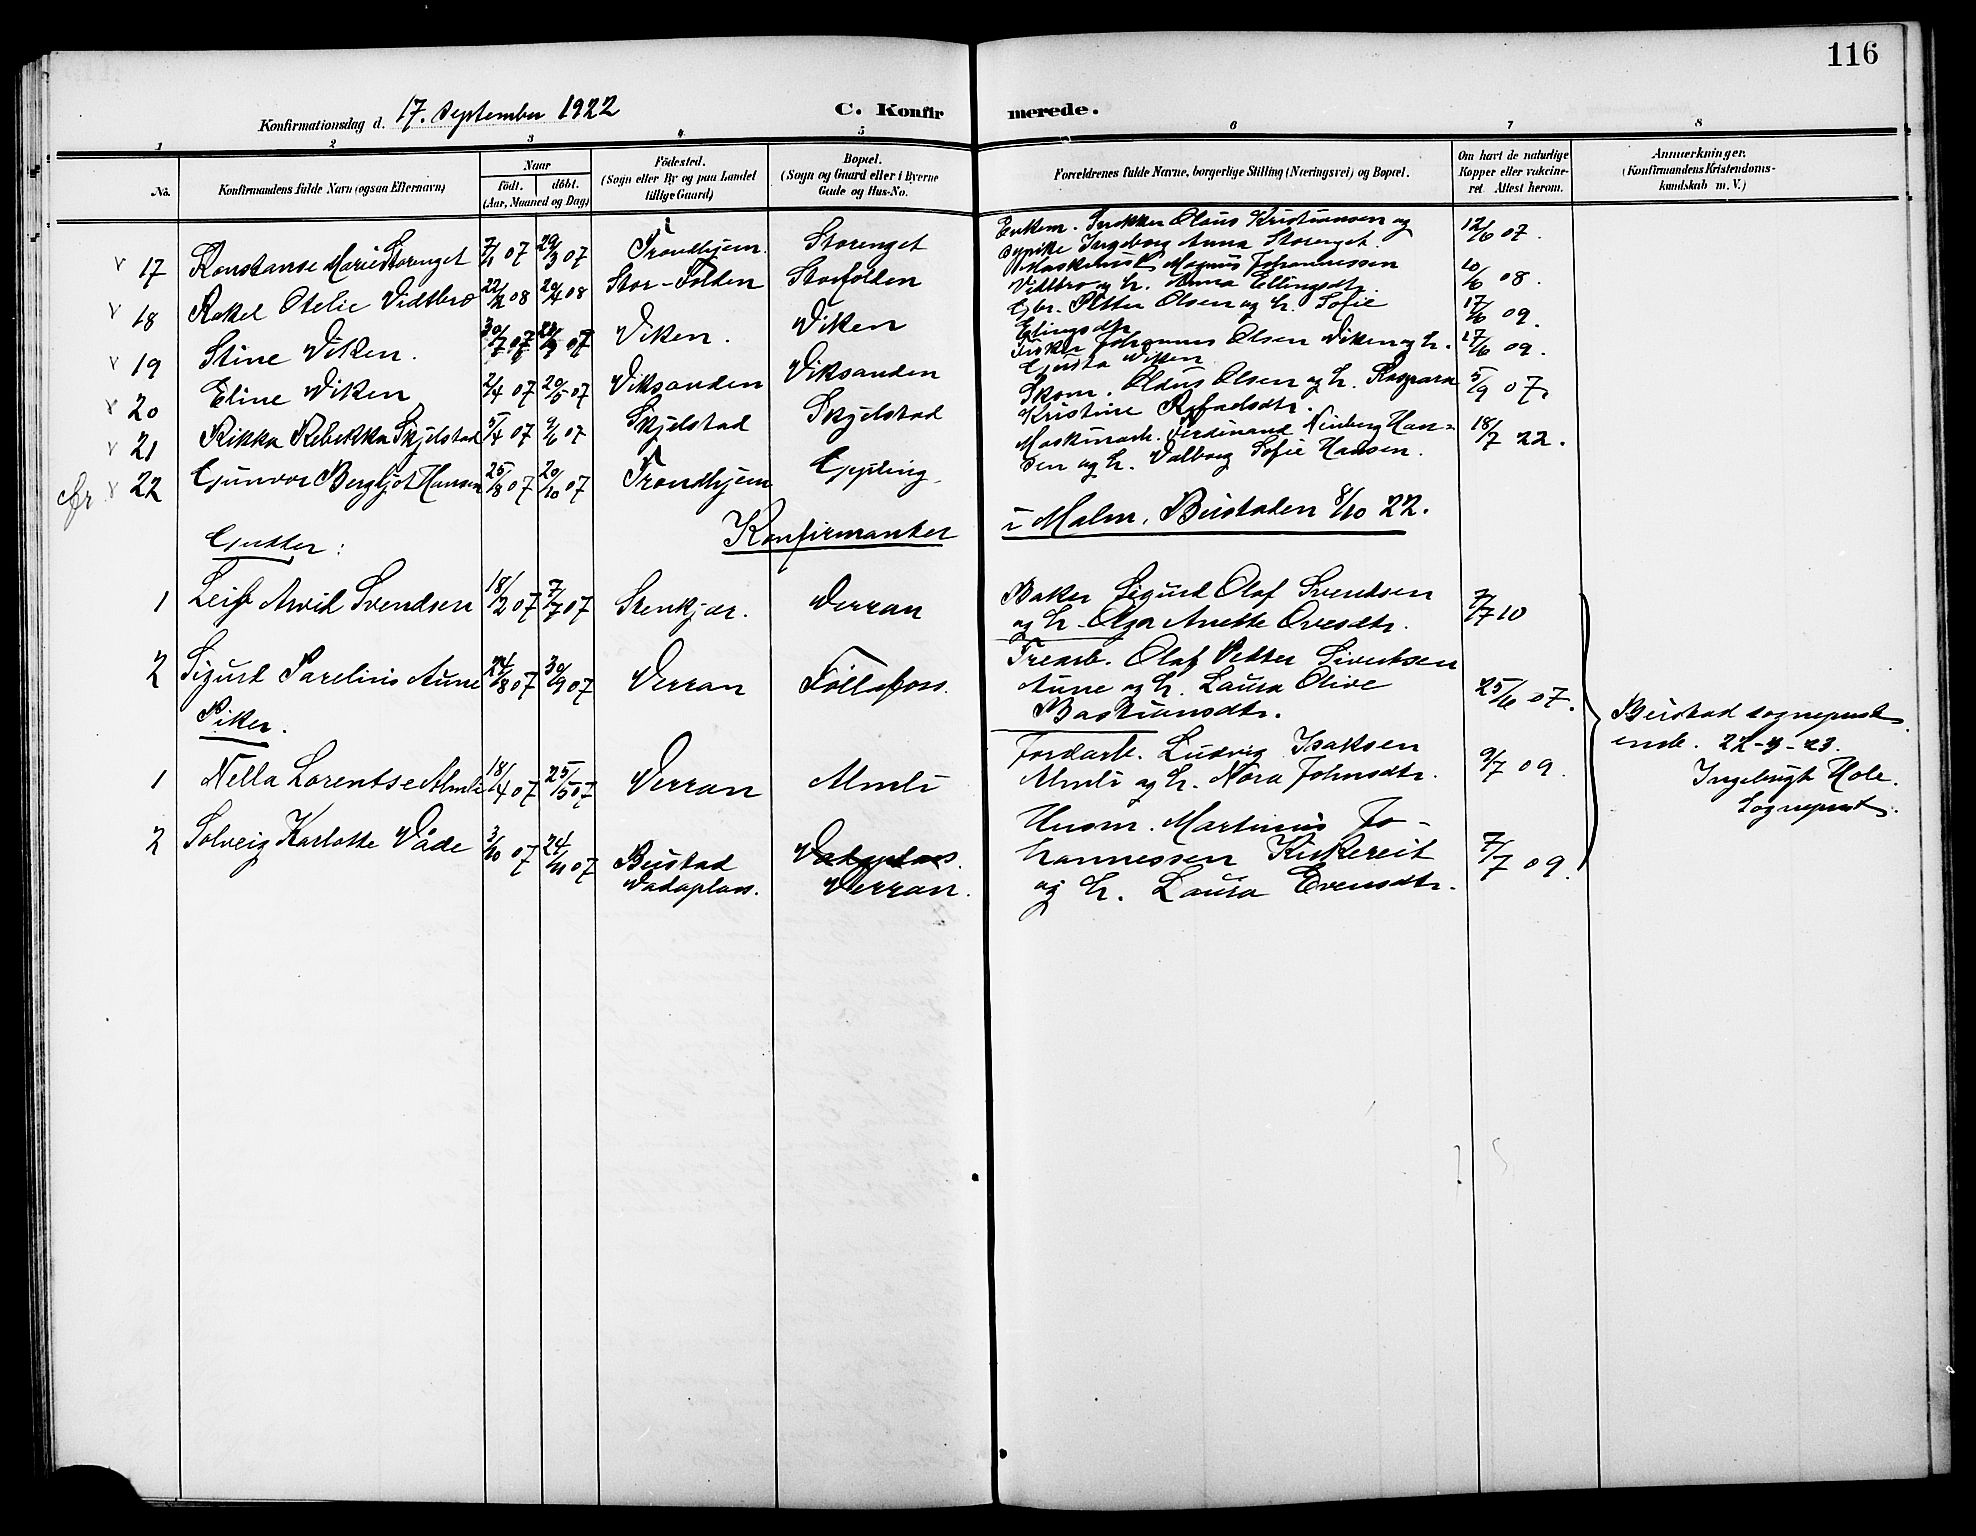 116
Konfirmationsdag d. 17. September 1922 C. Konfirmerede.
1 2 3 4 5 6 7 8
No. Konfirmandens fulde Navn (ogsaa Efternavn) Naar födt. döbt. (Aar, Maaned og Dag) Födested. (Sogn eller By og paa Landet tillige Gaard) Bopæl. (Sogn og Gaard eller i Byerne Gade og Hus-No. Forældrenes fulde Navne, borgerlige Stilling (Næringsvei) og Bopæl. Om havt de naturlige Kopper eller vakcineret. Attest herom. Anmærkninger. (Konfirmandens Kristendomskundskab m. V.)
17 Konstanse Marie Storenget 7/1 07 29/3 07 Trondhjem. Storenget Enkem. Snekker Olaus Kristiansen og
pynike Ingeborg Anna Storenget 12/6 07.
18 Rakel Otelie Vidtbro 22/2 08 20/4 08 Stor-Folden Storfolden Maskinist Magnus Johannessen
Vidtbro og h. Anna Ellingsdtr. 10/6 08.
19 Stine Viken. 30/7 07 07 Viken. Viken Gbr. Petter Olsen og h. Sofie
Elingsdtr. 17/6 09.
20 Eline Viken 2/4 07 20/5 07 Viksanden Viksanden Fisker Johannes Olsen Viken og h.
Gjusta Viken 17/6 09.
21 Rikka Rebekka Skjelstad 5/4 07 9/6 07 Skjelstad Skjelstad Skom. Oldus Olsen og h. Kaspara
Kristine Rafaelsdtr. 5/9 07.
fr. 22 Gunvor Bergljot Hansen 25/8 07 20/10 07 Trondhjem Gjpling. Maskinarb. Ferdinand Ninberg Han-
sen og h. Valborg Sofie Hansen. 18/7 22.
Konfirmanter i Malm, Beistaden 8/10 22.
Gutter:
1 Leif Arvid Svendsen 18/2 07 7/7 07 Stenkjær. Verran Baker Sigurd Olaf Svendsen
og h. Olga Anette Ovesdtr. 7/7 10
2 Sigurd Parelius Aune 24/8 07 30/9 07 Verran Follafoss. Trearb. Olaf Petter Sivertsen
Aune og h. Laura Olive
Bastiansdtr. 25/6 07.
Piker.
1 Nella Lorentse Almli 18/4 07 25/5 07 Verran Almli Jordarb. Ludvig Isaksen
Almli og h. Nora Johnsdtr. 9/7 09.
2 Solveig Karlotte Våde 3/10 07 24/11 07 Beistad Vadaplass. Vadaplass.
Verran. Husm. Martinius Jo-
hannessen Kirkereit
og h. Laura Evensdtr. 7/7 09.
Beistad sogneprest
emb. 22-3-23.
Ingebrigt Hole.
Sogneprest.